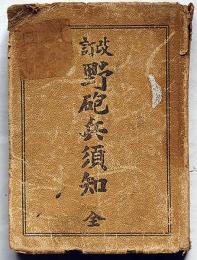 改訂
野砲兵須知
全